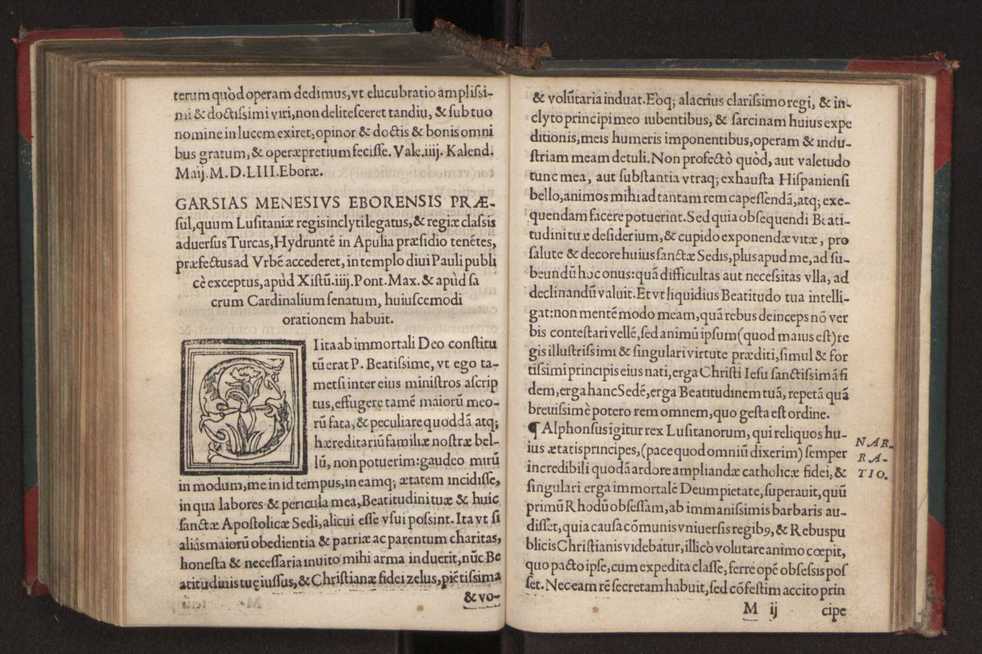 terum quòd operam dedimus, vt elucubratio amplißi-
mi & doctißimi viri, non delitesceret tandiu, & sub tuo
nomine in lucem exiret, opinor & doctis & bonis omni
bus gratum, & operæpretium fecisse. Vale. iiij. Kalend.
Maij. M.D.LIII. Eboræ.
GARSIAS MENESIVS EBORENSIS PRÆ-
sul, quum Lusitaniæ regis inclyti legatus, & regiæ classis
aduersus Turcas, Hydruntē in Apulia præsidio tenētes,
præfectus ad Vrbē accederet, in templo diui Pauli publi
cè exceptus, apùd Xistū. iiij. Pont. Max. & apùd sa
crum Cardinalium senatum, huiuscemodi
orationem habuit.
SI ita ab immortali Deo constitu
tū erat P. Beatißime, vt ego ta-
metsi inter eius ministros ascrip
tus, effugere tamē maiorū meo-
rū fata, & peculiare quoddā atq;
hæreditariū familiæ nostræ bel-
lū, non potuerim: gaudeo mirū
in modum, me in id tempus, in eamq; ætatem incidisse,
in qua labores & pericula mea, Beatitudini tuæ & huic
sanctæ Apostolicæ Sedi, alicui esse vsui possint. Ita vt si
aliàs maiorū obedientia & patriæ ac parentum charitas,
honesta & necessaria inuito mihi arma induerit, nūc Be
atitudinis tuę iussus, & Christianæ fidei zelus, piētissima
& vo-
& volūtaria induat. Eoq; alacrius clarissimo regi, & in-
clyto principi meo iubentibus, & sarcinam huius expe
ditionis, meis humeris imponentibus, operam & indu-
striam meam detuli. Non profectò quòd, aut valetudo
tunc mea, aut substantia vtraq; exhausta Hispaniensi
bello, animos mihi ad tantam rem capessendā, atq; exe-
quendam facere potuerint. Sed quia obsequendi Beati-
tudini tuæ desiderium, & cupido exponendæ vitæ, pro
salute & decore huius sanctæ Sedis, plus apud me, ad su-
beundū hoc onus: quā difficultas aut necessitas vlla, ad
declinandū valuit. Et vt liquidius Beatitudo tua intelli-
gat: non mentē modo meam, quā rebus deinceps nō ver
bis contestari vellē, sed animū ipsum (quod maius est) re
gis illustrissimi & singulari virtute præditi, simul & for
tissimi principis eius nati, erga Christi Iesu sanctissimā fi
dem, erga hanc Sedē, erga Beatitudinem tuā, repetā quā
breuissimè potero rem omnem, quo gesta est ordine.
¶ Alphonsus igitur rex Lusitanorum, qui reliquos hu-
ius ætatis principes, (pace quod omniū dixerim) semper
incredibili quodā ardore ampliandæ catholicæ fidei, &
singulari erga immortalē Deum pietate, superauit, quū
primū Rhodū obsessam, ab immanissimis barbaris au-
disset, quia causa cōmunis vniuersis regib9, & Rebuspu
blicis Christianis videbatur, illicò volutare animo cœpit,
quo pacto ipse, cum expedita classe, ferre opē obsessis pos
set. Nec eam rē secretam habuit, sed cōfestim accito prin
M ij cipe
NAR-
RA-
TIO.